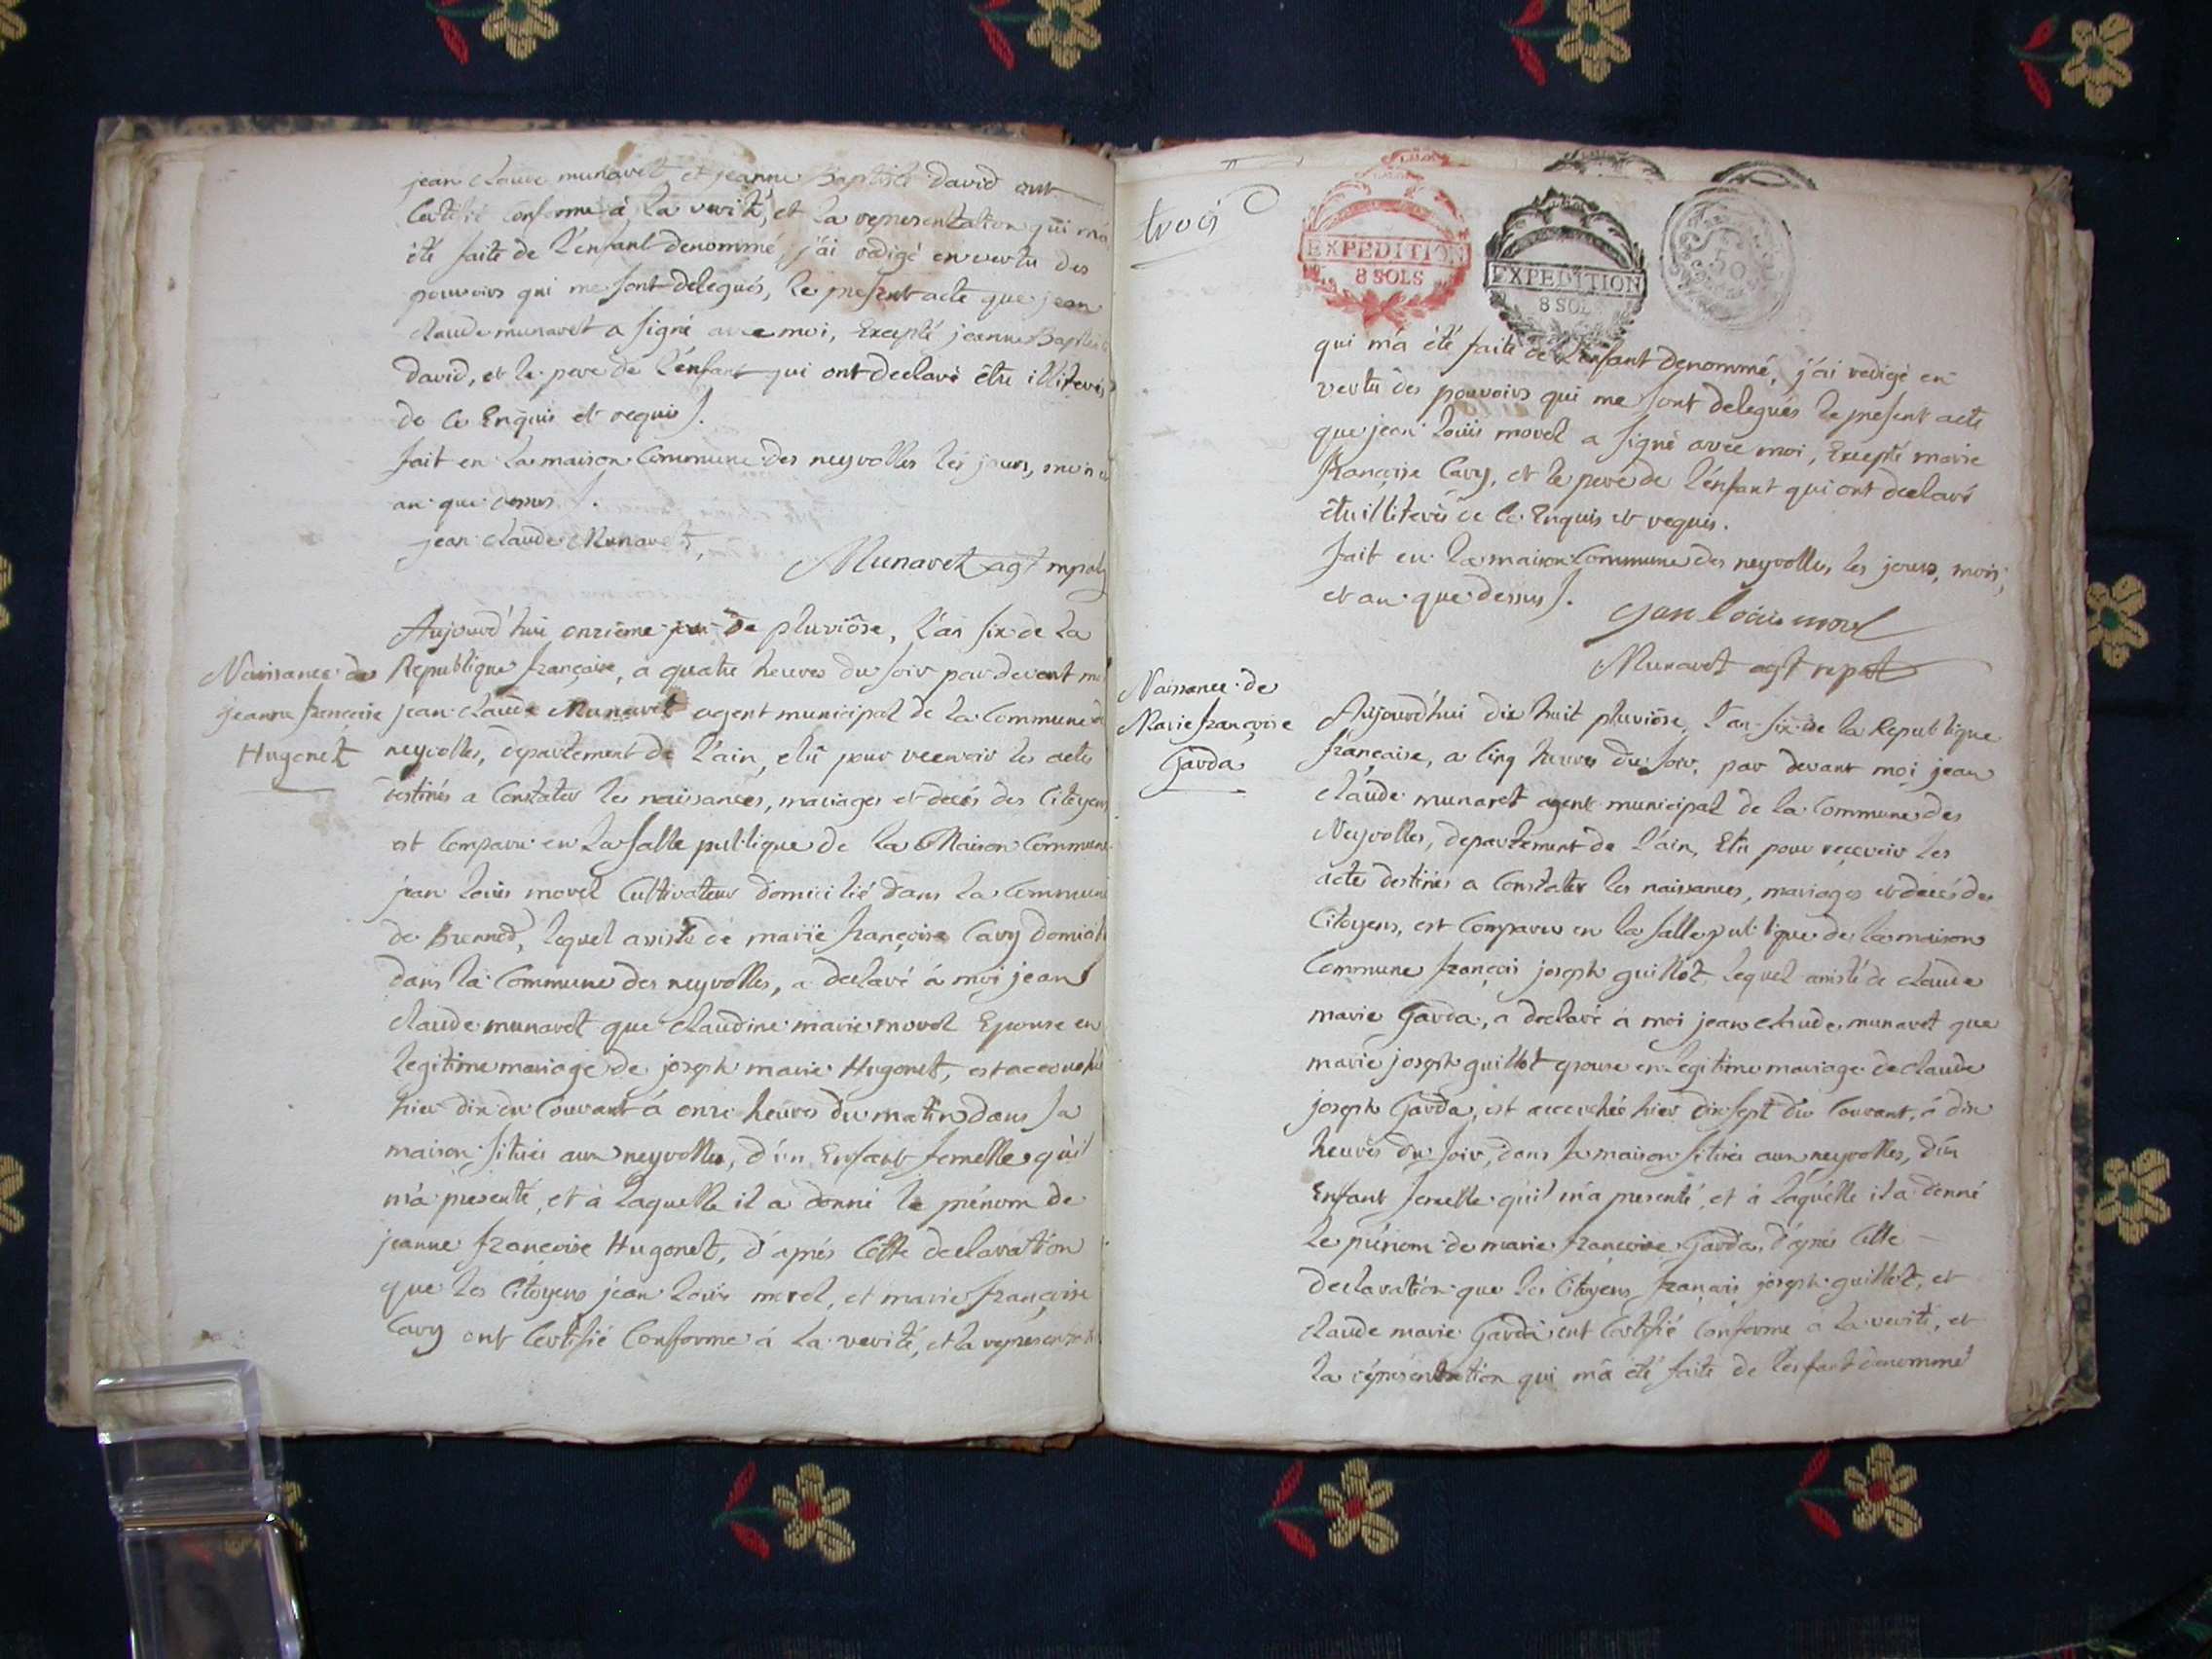 jean claude munaret et jeanne Baptiste david ont
Certifié conforme à la verité, et la representation qui m'a
été faite de l'enfant denommé, j'ai redigé en vertu des
pouvoirs qui me sont delegués, le present acte que jean
claude munaret a signé avec moi, Excepté jeanne Baptiste
david, et le pere de l'enfant qui ont declaré être illiterés
de ce Enquis et requis /.
fait en la maison Commune des neyrolles les jours, mois et
an que dessus /.
jean claude Munaret,
Munaret agt mpal
Naissance de
jeanne françoise
Hugonet
Aujourd'hui onzième jour de pluviôse, l'an six de la
Republique française, a quatre heures du soir par devant moi
jean claude Munaret agent municipal de la Commune des
neyrolles, departement de l'ain, elû pour recevoir les actes
destinés a Constater les naissances, mariages et decés des Citoyens
est Comparu en la salle publique de la Maison Commune
jean louis morel Cultivateur domicilié dans la Commune
de Brenod, lequel assisté de marie françoise Cary domicilié
dans la Commune des neyrolles, a declaré à moi jean
claude munaret que claudine marie morel Epouse en
legitime mariage de joseph marie Hugonet, est accouchée
hier dix du Courant à onze heures du matin dans sa
maison située aux neyrolles, d'un Enfant femelle qu'il
m'a presenté, et à laquelle il a donné le prénom de
jeanne françoise Hugonet, d'aprés Cette declaration
que les Citoyens jean louis morel, et marie françoise
Cary ont Certifié Conforme à la verité, et la representation
trois
EXPEDITION
8 SOLS
EXPEDITION
8 SOLS
50
qui m'a été faite de l'enfant denommé, j'ai redigé en
vertu des pouvoirs qui me sont delegués le present acte
que jean louis morel a signé avec moi, Excepté marie
françoise Cary, et le pere de l'enfant qui ont declaré
être illiterés de ce Enquis et requis.
fait en la maison Commune des neyrolles, les jours, mois,
et an que dessus /.
jean louis morel
Munaret agt mpal
Naissance de
Marie françoise
Garda
Aujourd'hui dix huit pluviôse, l'an six de la Republique
française, a Cinq heures du soir, par devant moi jean
claude munaret agent municipal de la Commune des
Neyrolles, departement de l'ain, Elû pour recevoir les
actes destinés a Constater les naissances, mariages et décés des
Citoyens, est Comparu en la salle publique de la maison
Commune françois joseph guillot lequel assisté de claude
marie Garda, a declaré à moi jean claude munaret que
marie joseph guillot epouse en legitime mariage de claude
joseph Garda, est accouchée hier dix sept du Courant, à dix
heures du soir, dans sa maison située aux neyrolles, d'un
Enfant femelle qu'il m'a presenté, et à laquelle il a donné
le prénom de marie françoise Garda, d'aprés Cette
declaration que les Citoyens françois joseph guillot, et
claude marie Garda ont Certifié Conforme a la verité, et
la représentation qui m'a été faite de l'enfant denommé